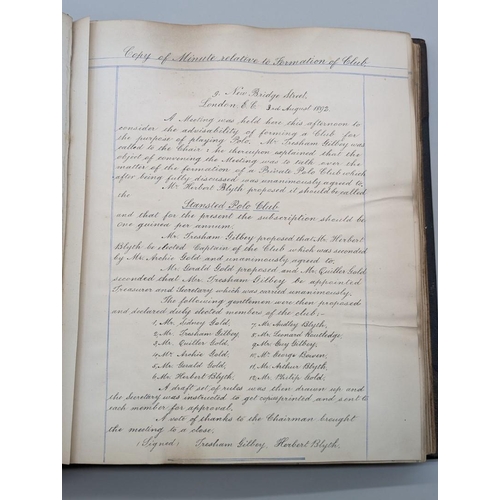 Copy of Minute relative to Formation of Club
9. New Bridge Street,
London E.C. 3rd August 1892.
A Meeting was held here this afternoon to
consider the advisability of forming a Club for
the purpose of playing Polo. Mr. Tresham Gilbey was
called to the Chair; he thereupon explained that the
object of convening the Meeting was to talk over the
matter of the formation of a Private Polo Club which
after being fully discussed was unanimously agreed to,
Mr. Herbert Blyth proposed it should be called
the
Stansted Polo Club
and that for the present the subscription should be
one guinea per annum.
Mr. Tresham Gilbey proposed that Mr. Herbert
Blyth be elected Captain of the Club which was seconded
by Mr. Archie Gold and unanimously agreed to,
Mr. Gerald Gold proposed and Mr. Quiller Gold
seconded that Mr. Tresham Gilbey be appointed
Treasurer and Secretary which was carried unanimously.
The following gentlemen were then proposed
and declared duly elected members of the club:-
1, Mr. Sidney Gold, 7, Mr. Audley Blyth,
2, Mr. Tresham Gilbey 8, Mr. Leonard Routledge,
3, Mr. Quiller Gold, 9, Mr. Guy Gilbey,
4, Mr Archie Gold, 10, Mr George Bowen,
5, Mr Gerald Gold, 11, Mr. Arthur Blyth,
6, Mr. Herbert Blyth, 12, Mr. Philip Gold,
A draft set of rules was then drawn up and
the Secretary was instructed to get copies printed and sent to
each member for approval.
A vote of thanks to the Chairman brought
the meeting to a close.
(Signed) Tresham Gilbey, Herbert Blyth.